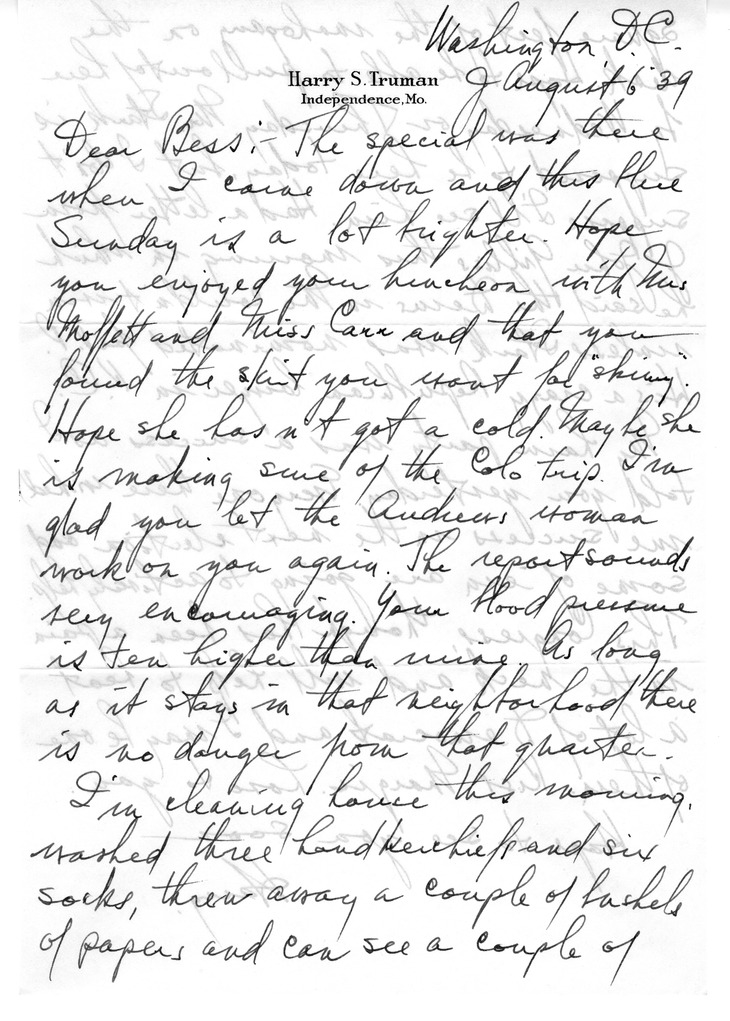 Washington, D.C.
Harry S. Truman
Independence, Mo.
August 6 '39
Dear Bess:- The special was there
when I came down and this blue
Sunday is a lot brighter. Hope
you enjoyed your luncheon with Mrs
Moffett and Miss Carr and that you
found the skirt you want for "skinny".
Hope she hasn't got a cold. Maybe she
is making sure of the Colo trip. I'm
glad you let the Andrews woman
work on you again. The report sounds
very encouraging. Your blood pressure
is ten higher than mine. As long
as it stays in that neighborhood there
is no danger from that quarter.
I'm cleaning house this morning,
washed three handkerchiefs and six
socks, threw away a couple of bushels
of papers and can see a couple of